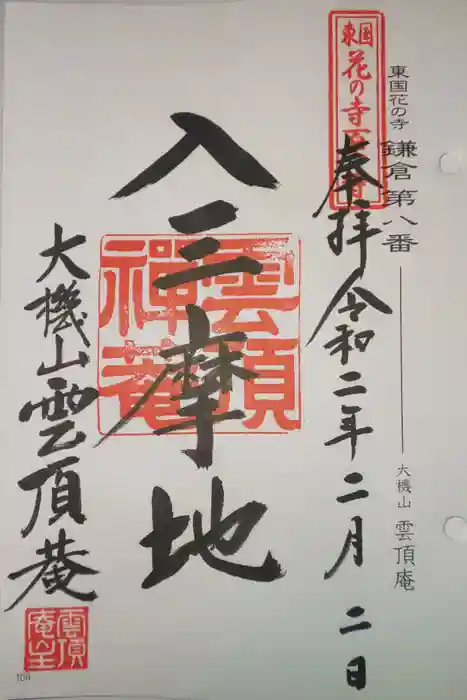 東国花の寺 鎌倉第八番
大機山 雲頂庵
東国
花の寺百ヶ寺
奉拝 令和二年二月二日
入三摩地
雲頂
禅菴
大機山雲頂菴
雲頂
庵主
108